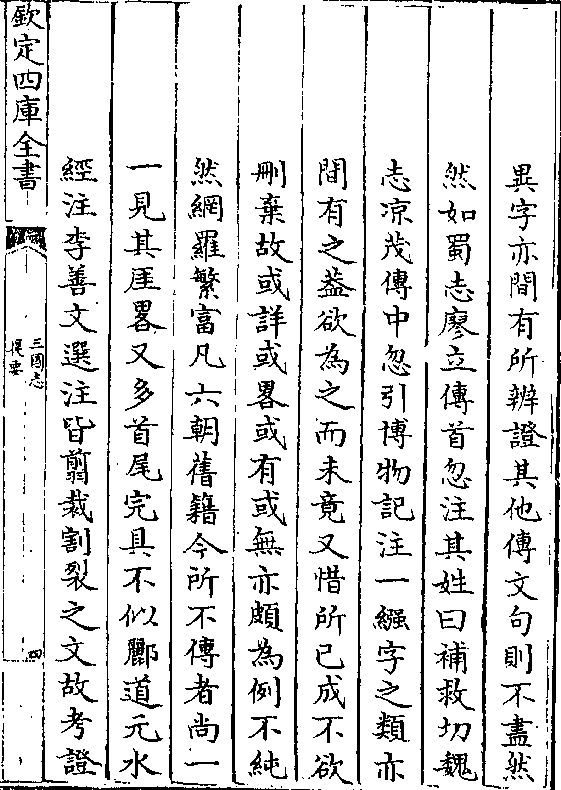 異字亦間有所辨證其他傳文句則不盡然
然如蜀志廖立傳首忽注其姓曰補救切魏
志凉茂傳中忽引博物記注一繈字之類亦
間有之葢欲為之而未竟又惜所已成不欲
刪棄故或詳或畧或有或無亦頗為例不純
然網羅繁富凡六朝舊籍今所不傳者尚一
一見其厓畧又多首尾完具不似酈道元水
經注李善文選注皆翦裁割裂之文故考證
欽定四庫全書
三國志
提要
四